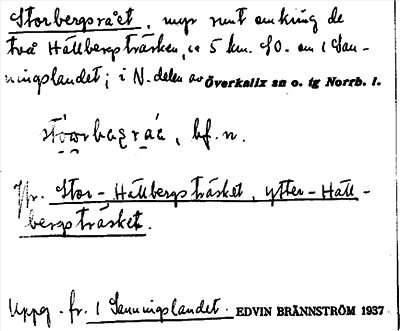 Storbergsrået, myr runt omkring de
två Hällbergsträsken, ca 5 km. SO. om 1 San-
ningslandet; i N-delen av Överkalix sn o. tg Norrb. l.
bf. n.
Jfr. Stor-Hällbergsträsket, Ytter-Häll-
bergsträsket.
Uppg. fr. 1 Sanningslandet. EDVIN BRÄNNSTRÖM 1937